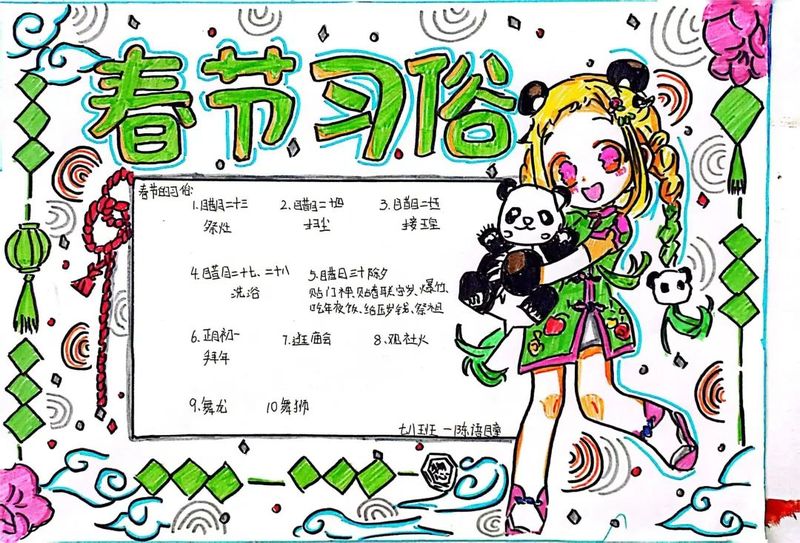 春节习俗
春节的习俗:
1.腊月二十三 2.腊月二十四 3.腊月二十五
祭灶 扫尘 接玉皇
4.腊月二十七、二十八 5.腊月三十除夕
洗浴 贴门神、贴春联、守岁、爆竹、
吃年夜饭、给压岁钱、祭祖
6.正月初一 7.逛庙会 8.观社火
拜年
9.舞龙 10舞狮
七八班 — 陈语瞳